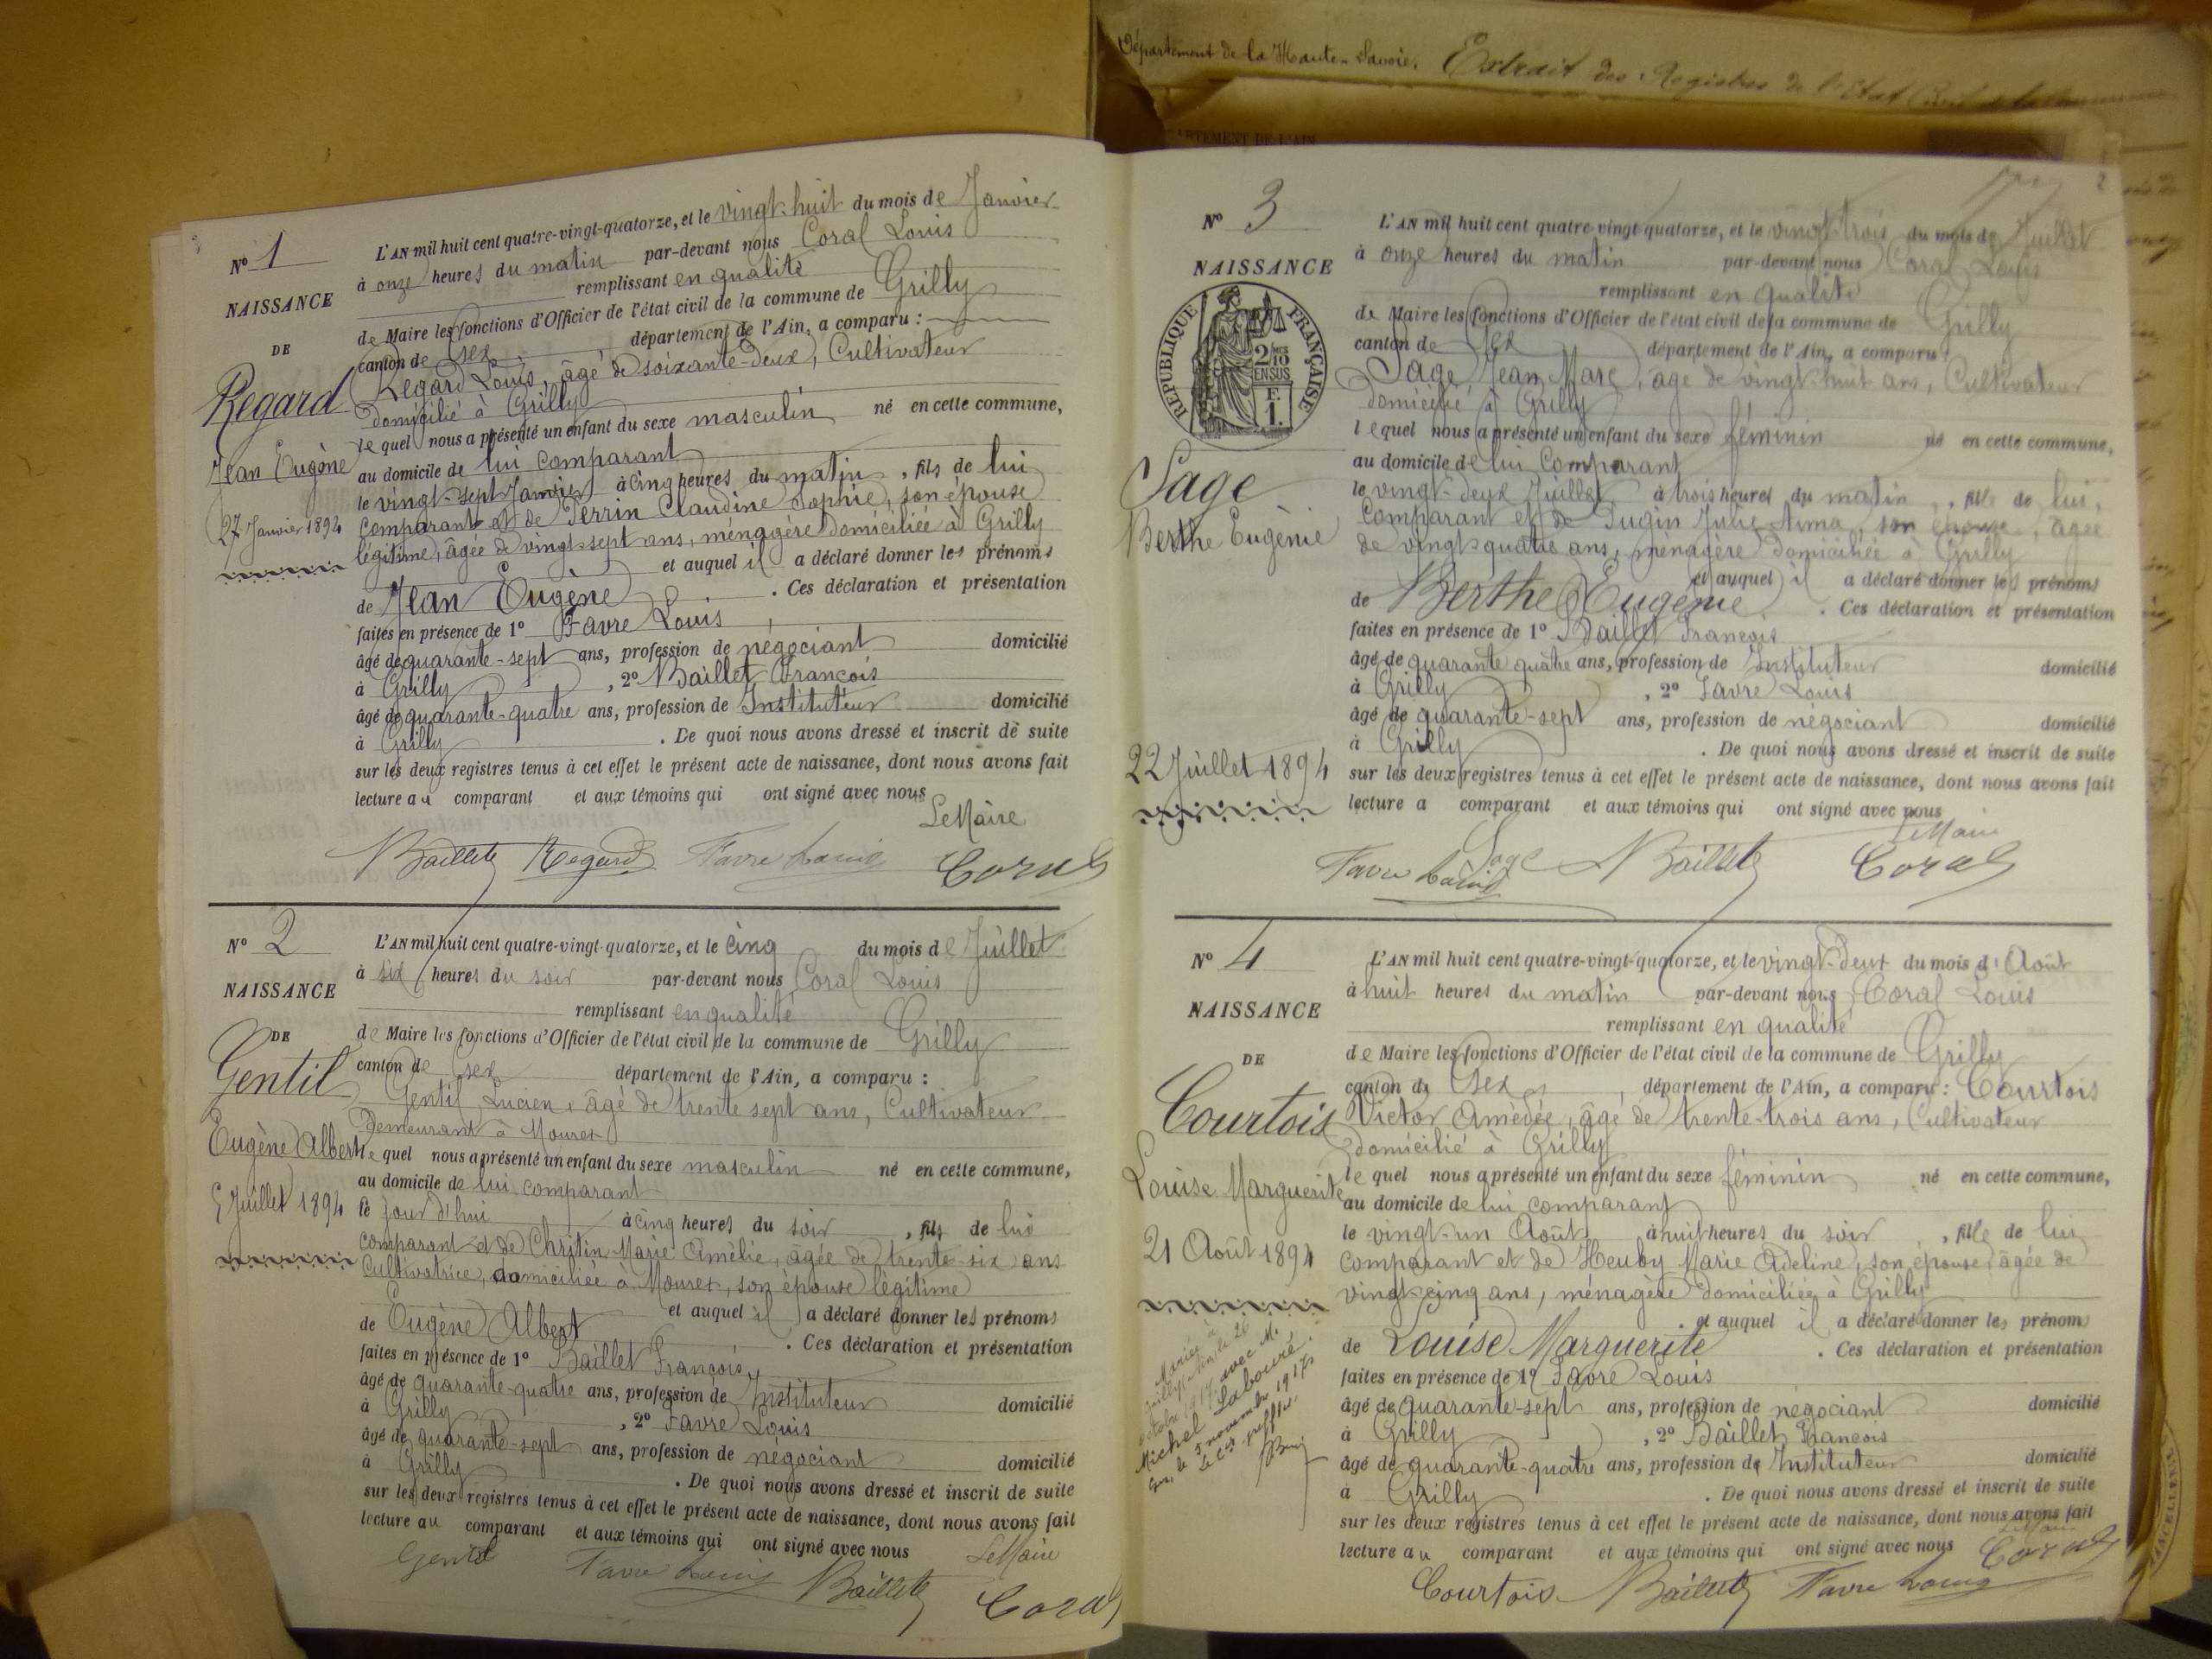 Département de la Haute-Savoie. Extrait des Registres de l'Etat Civil de la
ARTEMENT DE L'AIN
N° 1
NAISSANCE
DE
Regard
Jean Eugène
27 Janvier 1894
L'AN mil huit cent quatre-vingt-quatorze, et le vingt-huit du mois de Janvier
à onze heures du matin par-devant nous Coral Louis
remplissant en qualité
de Maire les fonctions d'Officier de l'état civil de la commune de Grilly
canton de Gex département de l'Ain, a comparu :
Regard Louis, âgé de soixante-deux, Cultivateur
domicilié à Grilly
lequel nous a présenté un enfant du sexe masculin né en cette commune,
au domicile de lui comparant
le vingt-sept Janvier à cinq heures du matin, fils de lui
comparant et de Perrin Claudine Sophie, son épouse
légitime, âgée de vingt-sept ans, ménagère domiciliée à Grilly
et auquel il a déclaré donner les prénoms
de Jean Eugène . Ces déclaration et présentation
faites en présence de 1° Favre Louis
âgé de quarante-sept ans, profession de négociant domicilié
à Grilly , 2° Baillet François
âgé de quarante-quatre ans, profession de Instituteur domicilié
à Grilly . De quoi nous avons dressé et inscrit de suite
sur les deux registres tenus à cet effet le présent acte de naissance, dont nous avons fait
lecture au comparant et aux témoins qui ont signé avec nous
Le Maire
Baillet Regard Favre Louis Coral
N° 2
NAISSANCE
DE
Gentil
Eugène Albert
5 Juillet 1894
L'AN mil huit cent quatre-vingt-quatorze, et le cinq du mois de Juillet
à six heures du soir par-devant nous Coral Louis
remplissant en qualité
de Maire les fonctions d'Officier de l'état civil de la commune de Grilly
canton de Gex département de l'Ain, a comparu :
Gentil Lucien, âgé de trente sept ans, Cultivateur
Demeurant à Mourex
lequel nous a présenté un enfant du sexe masculin né en cette commune,
au domicile de lui comparant
le jour d'hui à cinq heures du soir , fils de lui
comparant et de Chritin Marie Amélie, âgée de trente-six ans
Cultivatrice, domiciliée à Mourex, son épouse légitime
et auquel il a déclaré donner les prénoms
de Eugène Albert . Ces déclaration et présentation
faites en présence de 1° Baillet François,
âgé de quarante-quatre ans, profession de Instituteur domicilié
à Grilly , 2° Favre Louis
âgé de quarante-sept ans, profession de négociant domicilié
à Grilly . De quoi nous avons dressé et inscrit de suite
sur les deux registres tenus à cet effet le présent acte de naissance, dont nous avons fait
lecture au comparant et aux témoins qui ont signé avec nous
Le Maire
Gentil Favre Louis Baillet Coral
2
N° 3
NAISSANCE
RÉPUBLIQUE FRANÇAISE
Sage
Berthe Eugènie
22 Juillet 1894
L'AN mil huit cent quatre-vingt-quatorze, et le vingt-trois du mois de Juillet
à onze heures du matin par-devant nous Coral Louis
remplissant en qualité
de Maire les fonctions d'Officier de l'état civil de la commune de Grilly
canton de Gex département de l'Ain, a comparu :
Sage Jean Marc, âgé de vingt-huit ans, Cultivateur
domicilié à Grilly
lequel nous a présenté un enfant du sexe féminin né en cette commune,
au domicile de lui comparant
le vingt-deux Juillet à trois heures du matin, fille de lui,
comparant et de Pugin Julie Anna, son épouse, âgée
de vingt-quatre ans, ménagère domiciliée à Grilly
et auquel il a déclaré donner les prénoms
de Berthe Eugénie . Ces déclaration et présentation
faites en présence de 1° Baillet François
âgé de quarante quatre ans, profession de Instituteur domicilié
à Grilly , 2° Favre Louis
âgé de quarante-sept ans, profession de négociant domicilié
à Grilly . De quoi nous avons dressé et inscrit de suite
sur les deux registres tenus à cet effet le présent acte de naissance, dont nous avons fait
lecture a comparant et aux témoins qui ont signé avec nous
Le Maire
Favre Louis Sage Baillet Coral
N° 4
NAISSANCE
DE
Courtois
Louise Marguerite
21 Août 1894
Mariée à
Grilly (Ain) le 26
octobre 1917 avec M.
Michel Labouré.
Gex, le 5 novembre 1917
Le Ces-greffier
L'AN mil huit cent quatre-vingt-quatorze, et le vingt-deux du mois d'Août
à huit heures du matin par-devant nous Coral Louis
remplissant en qualité
de Maire les fonctions d'Officier de l'état civil de la commune de Grilly
canton de Gex département de l'Ain, a comparu : Courtois
Victor Amédée, âgé de trente-trois ans, Cultivateur
domicilié à Grilly
lequel nous a présenté un enfant du sexe féminin né en cette commune,
au domicile de lui comparant
le vingt-un Août à huit heures du soir , fille de lui
comparant et de Heuby Marie Adeline, son épouse, âgée de
vingt-cinq ans, ménagère domiciliée à Grilly
. et auquel il a déclaré donner les prénoms
de Louise Marguerite . Ces déclaration et présentation
faites en présence de 1° Favre Louis
âgé de quarante-sept ans, profession de négociant domicilié
à Grilly , 2° Baillet François
âgé de quarante-quatre ans, profession de Instituteur domicilié
à Grilly . De quoi nous avons dressé et inscrit de suite
sur les deux registres tenus à cet effet le présent acte de naissance, dont nous avons fait
lecture au comparant et aux témoins qui ont signé avec nous
Le Maire
Coral
Courtois Baillet Favre Louis